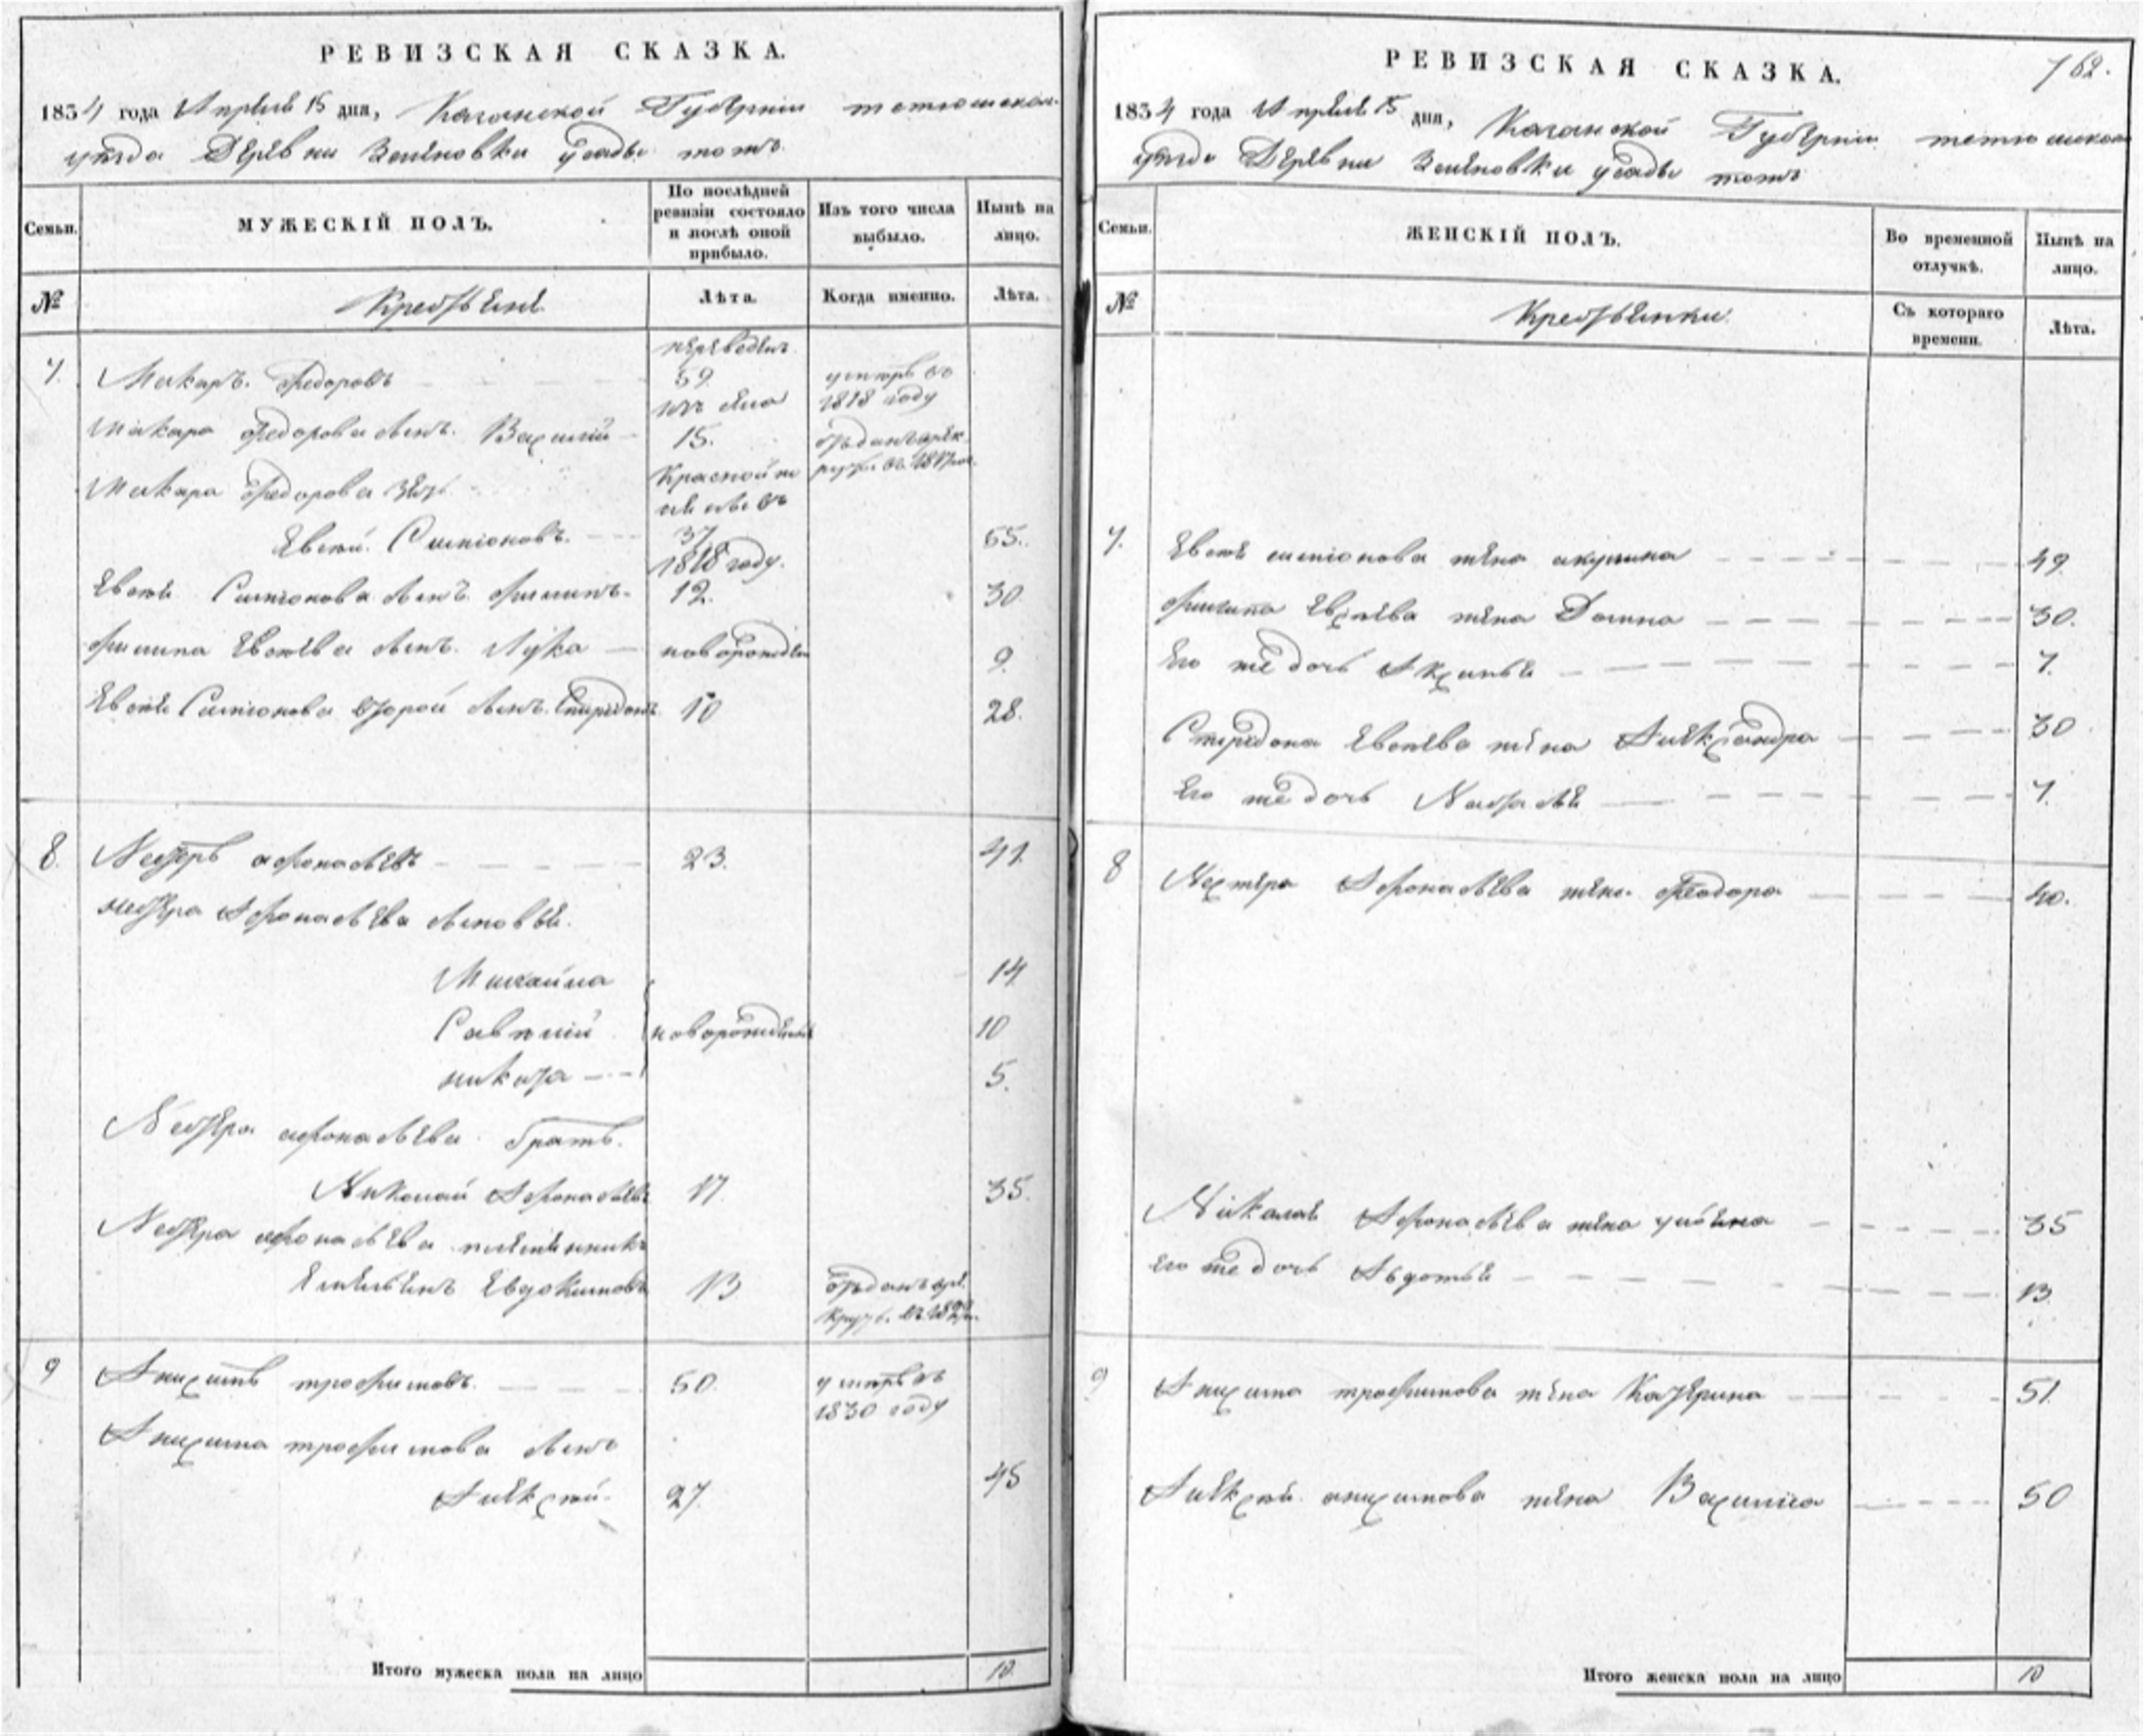 РЕВИЗСКАЯ СКАЗКА.
1834 года Апреля 15 дня, Казанской Губернии тетюшскаго
уезда Деревни Зеленовки тожъ
Семьи.
МУЖЕСКІЙ ПОЛЪ.
По послѣдней ревизіи состояло и послѣ оной прибыло.
Изъ того числа выбыло.
Нынѣ на лицо.
№
Крестьяне
Лѣта.
Когда именно.
Лѣта.
7. Макаръ Федоровъ переведенъ 59. умеръ въ 1818 году
Макара Федорова сынъ Василий 15. отданъ в рекруты
Макара Федорова зять
Евсей Симионовъ 37 55.
1818 году.
Евсея Симионова сынъ Филипъ 12. 30.
Филипа Евсеева сынъ Лука новорожден 9.
Евсея Симионова второй сынъ Спиридонъ 10 28.
8. Нестеръ афонасьевъ 23. 41.
Нестера Афонасьева сыновья
Михайла 14
Савелий новорожденные 10
никита 5.
Нестера афонасьева братъ
Николай Афонасьевъ 17. 35.
Нестера афонасьева племенникъ
Емельянъ Евдокимовъ 13 отданъ в рекруты
9 Анисимъ трофимовъ 50. умеръ въ 1830 году
Анисима трофимова сынъ
Алексей 27. 45
Итого мужеска пола на лицо 10.
162.
РЕВИЗСКАЯ СКАЗКА.
1834 года Апреля 15 дня, Казанской Губернии тетюшскаго
уезда Деревни Зеленовки тожъ
Семьи.
ЖЕНСКІЙ ПОЛЪ.
Во временной отлучкѣ.
Нынѣ на лицо.
№
Крестьянки
Съ котораго времени.
Лѣта.
7. Евсея симионова жена акулина 49
Филипа Евсеева жена Домна 30.
Его же дочь Аксинья 7.
Спиридона Евсеева жена Александра 30
Его же дочь Наталья 7.
8 Нестера Афонасьева жена Феодора 40.
Николая Афонасьева жена ульяна 35
Его же дочь Авдотья 13.
9 Анисима трофимова жена Катерина 51.
Алексея анисимова жена Василиса 50
Итого женска пола на лицо 10